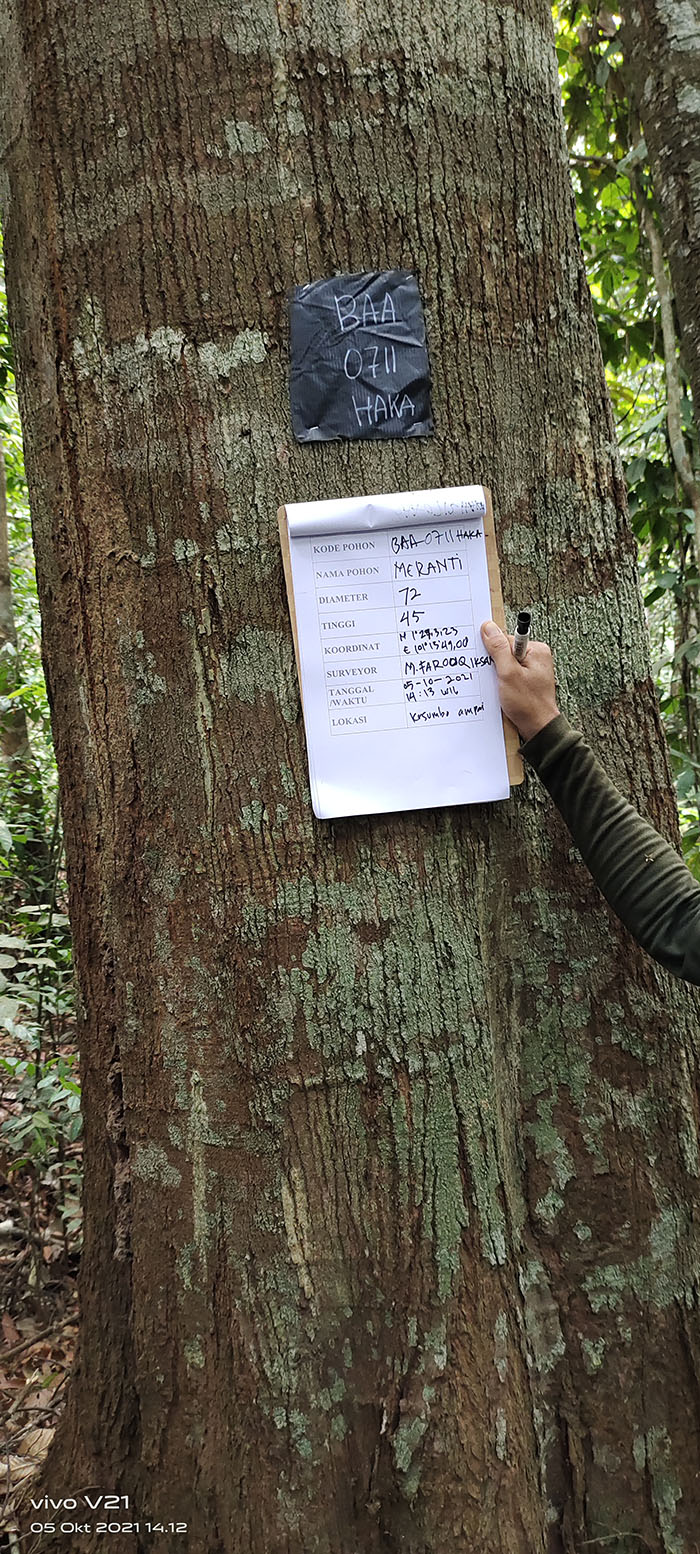 BAA
0711
HAKA
KODE POHON BAA-0711 HAKA
NAMA POHON MERANTI
DIAMETER 72
TINGGI 45
KOORDINAT N 1°29,3,23
E 101°15'49,00
SURVEYOR M.FAROUQ IKSAN
TANGGAL /WAKTU 05-10-2021
14:13 WIB
LOKASI Kusumbo ampai
vivo V21
05 Okt 2021 14.12